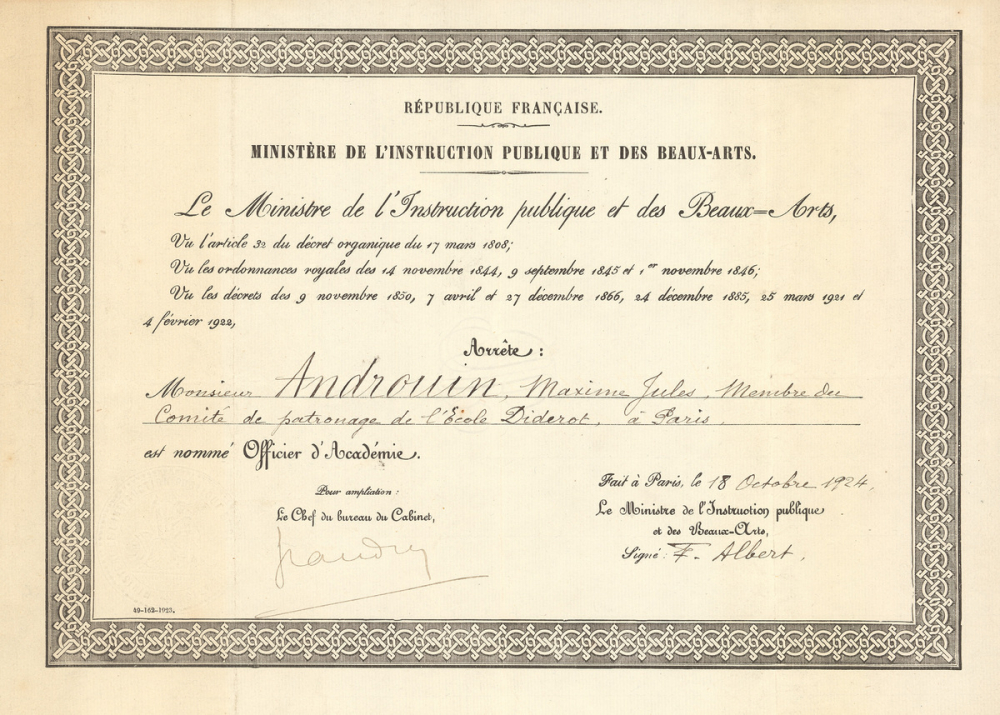 RÉPUBLIQUE FRANÇAISE.
MINISTÈRE DE L'INSTRUCTION PUBLIQUE ET DES BEAUX-ARTS.
Le Ministre de l'Instruction publique et des Beaux=Arts,
Vu l'article 32 du décret organique du 17 mars 1808;
Vu les ordonnances royales des 14 novembre 1844, 9 septembre 1845 et 1er novembre 1846;
Vu les décrets des 9 novembre 1850, 7 avril et 27 décembre 1866, 24 décembre 1885, 25 mars 1921 et
4 février 1922,
Arrête :
Monsieur Androuin, Maxime Jules, Membre du
Comité de patronage de l'École Diderot, à Paris,
est nommé Officier d'Académie.
Fait à Paris, le 18 Octobre 1924,
Pour ampliation :
Le Chef du bureau du Cabinet,
Le Ministre de l'Instruction publique
et des Beaux-Arts,
Signé : F. Albert,
40-162-1923.